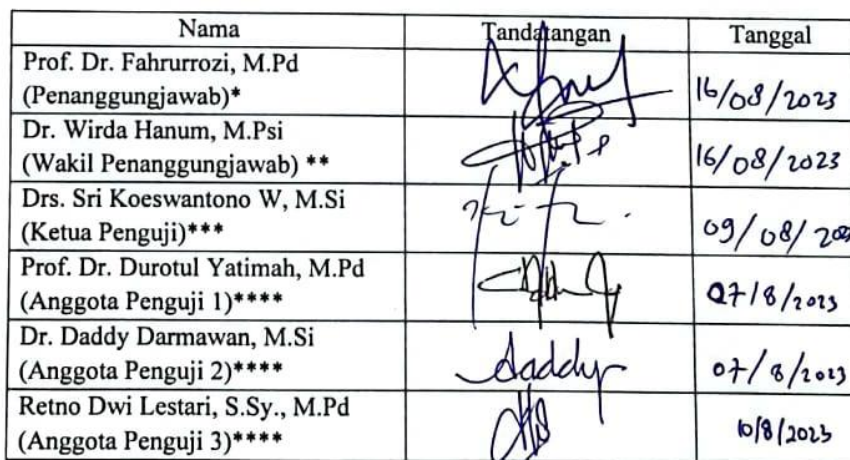 Nama Tandatangan Tanggal
Prof. Dr. Fahrurrozi, M.Pd
(Penanggungjawab)* 16/08/2023
Dr. Wirda Hanum, M.Psi
(Wakil Penanggungjawab) ** 16/08/2023
Drs. Sri Koeswantono W, M.Si
(Ketua Penguji)*** 09/08/
Prof. Dr. Durotul Yatimah, M.Pd
(Anggota Penguji 1)**** 07/8/2023
Dr. Daddy Darmawan, M.Si
(Anggota Penguji 2)**** daddy 07/8/2023
Retno Dwi Lestari, S.Sy., M.Pd
(Anggota Penguji 3)**** 10/8/2023